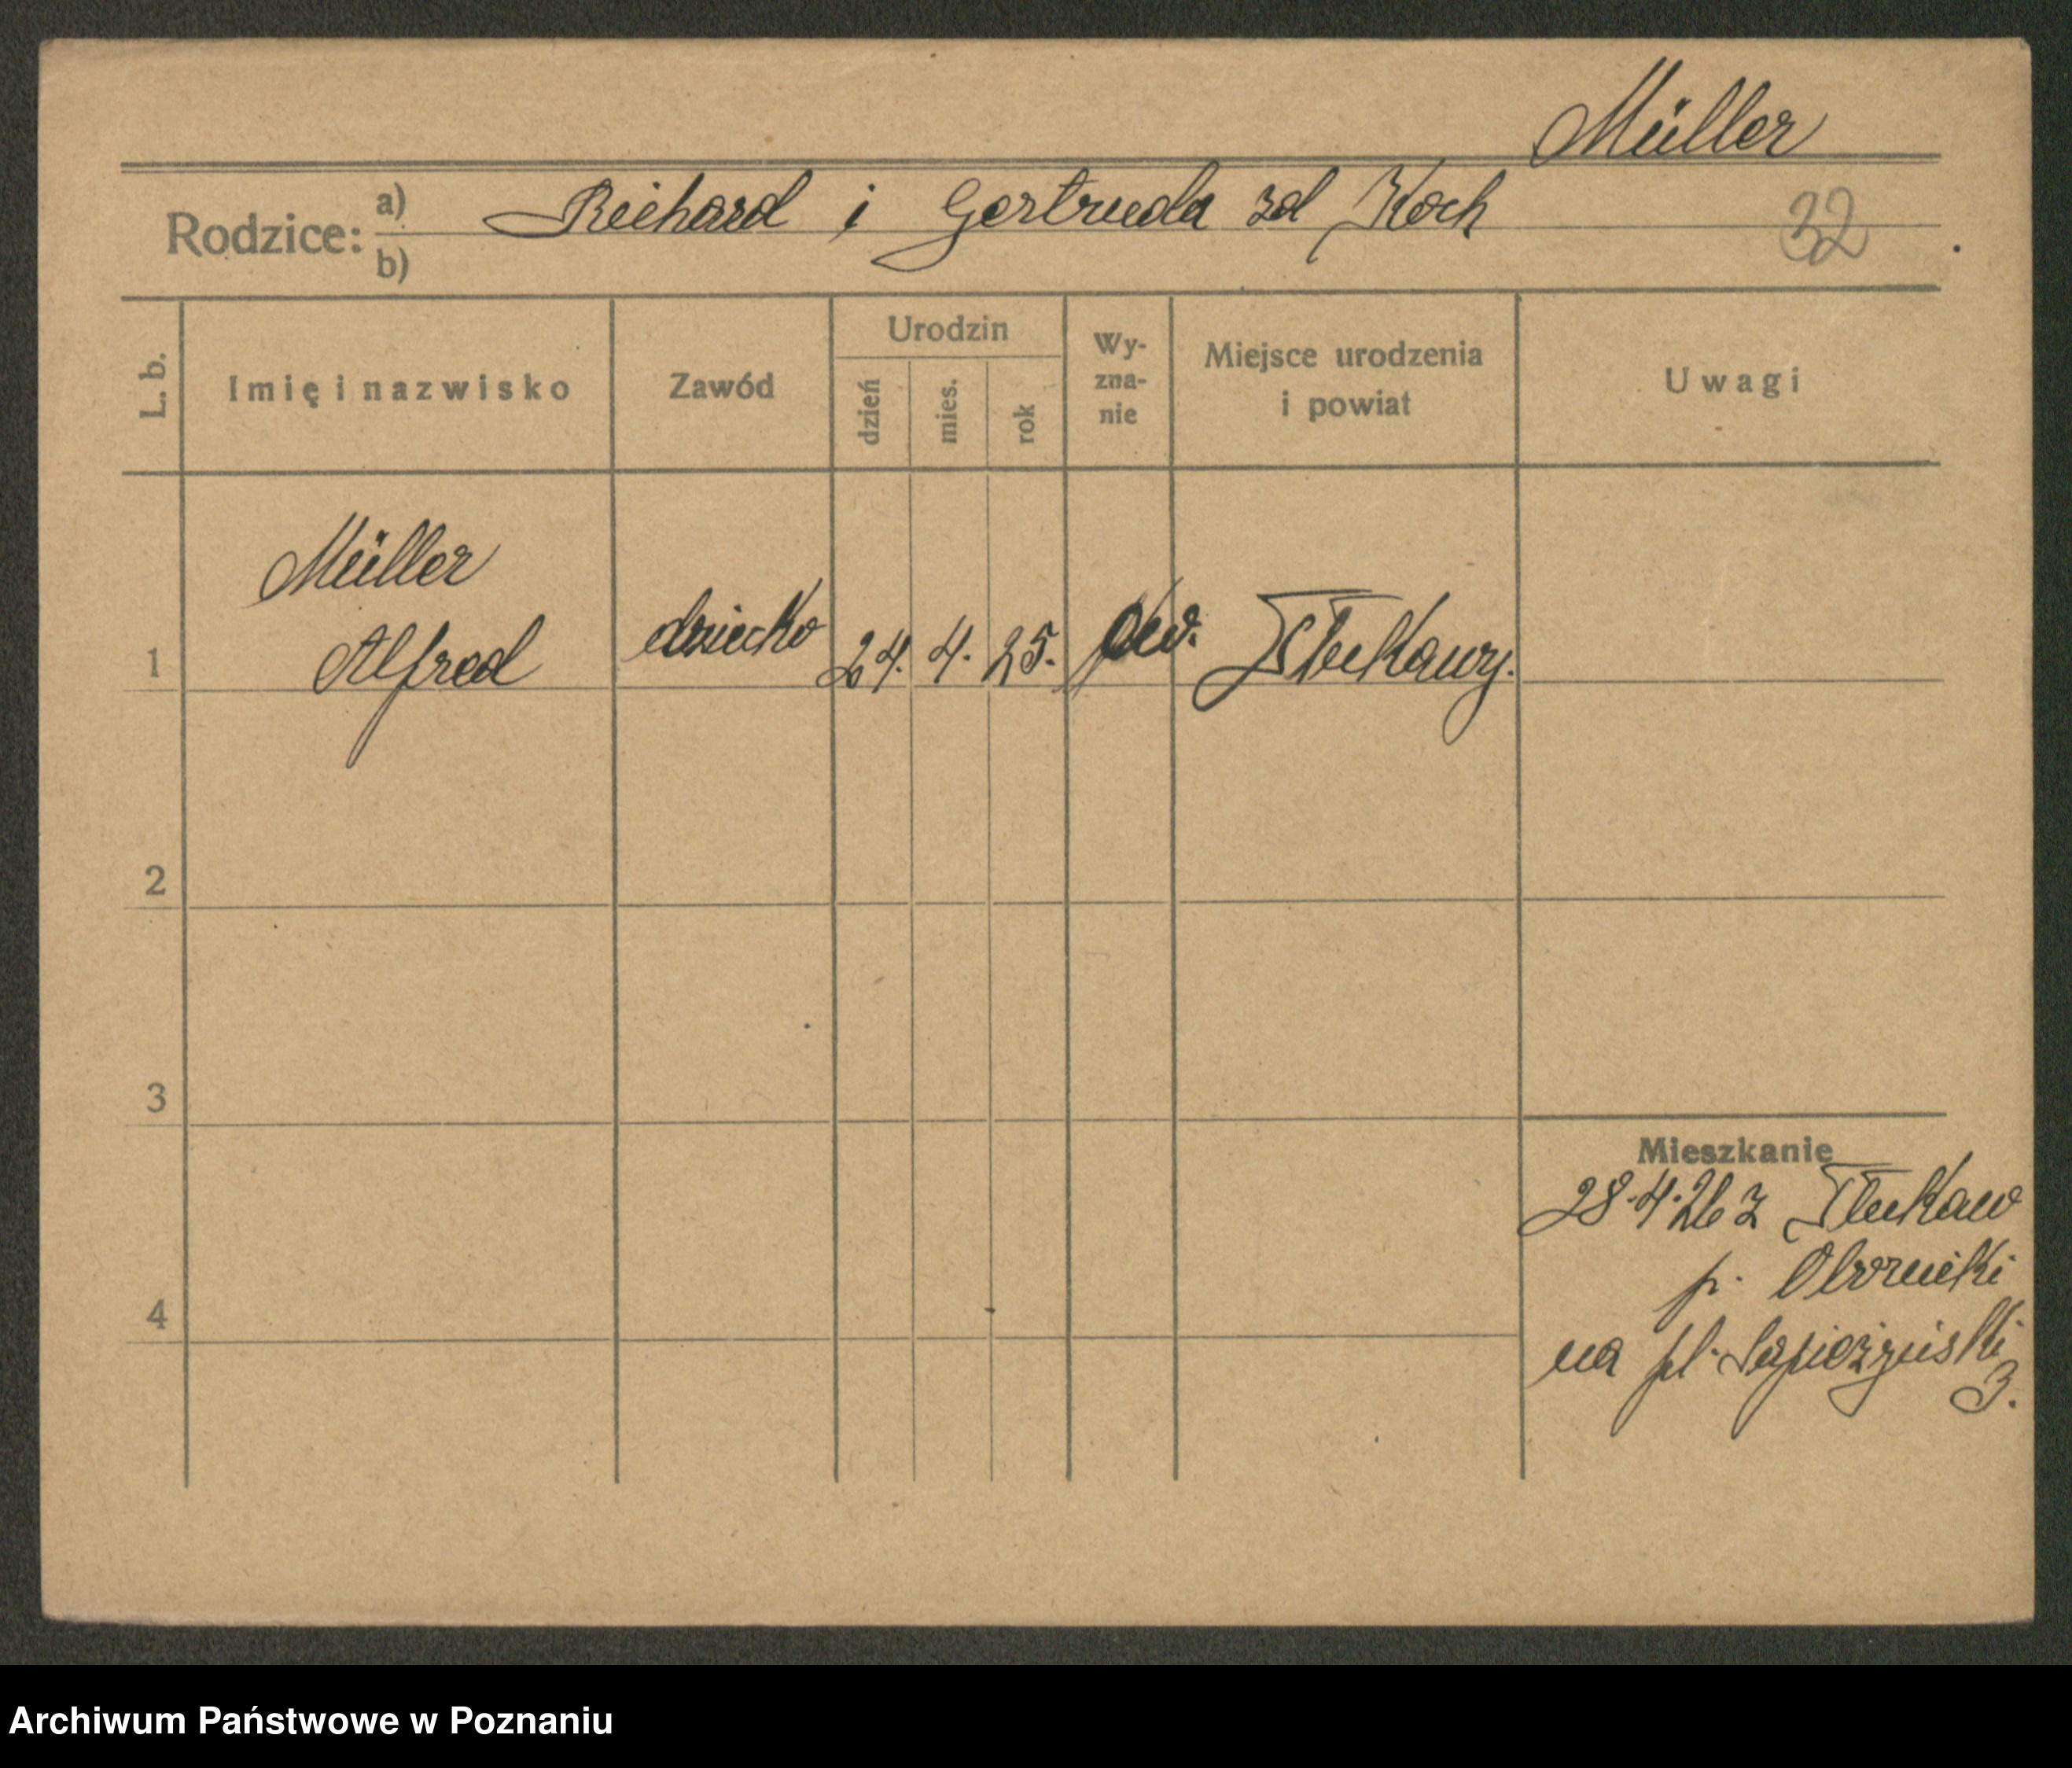 Müller
Rodzice: a) Richard i Gertruda zd Koch
b)
32
L. b. Imię i nazwisko Zawód Urodzin dzień mies. rok Wyznanie Miejsce urodzenia i powiat Uwagi
Müller
1 Alfred dziecko 24. 4. 25. ew. Tłukawy.
2
3
Mieszkanie
28.4.26 z Tłukaw
p. Oborniki
4
na pl. Sapieżyński
3.
Archiwum Państwowe w Poznaniu